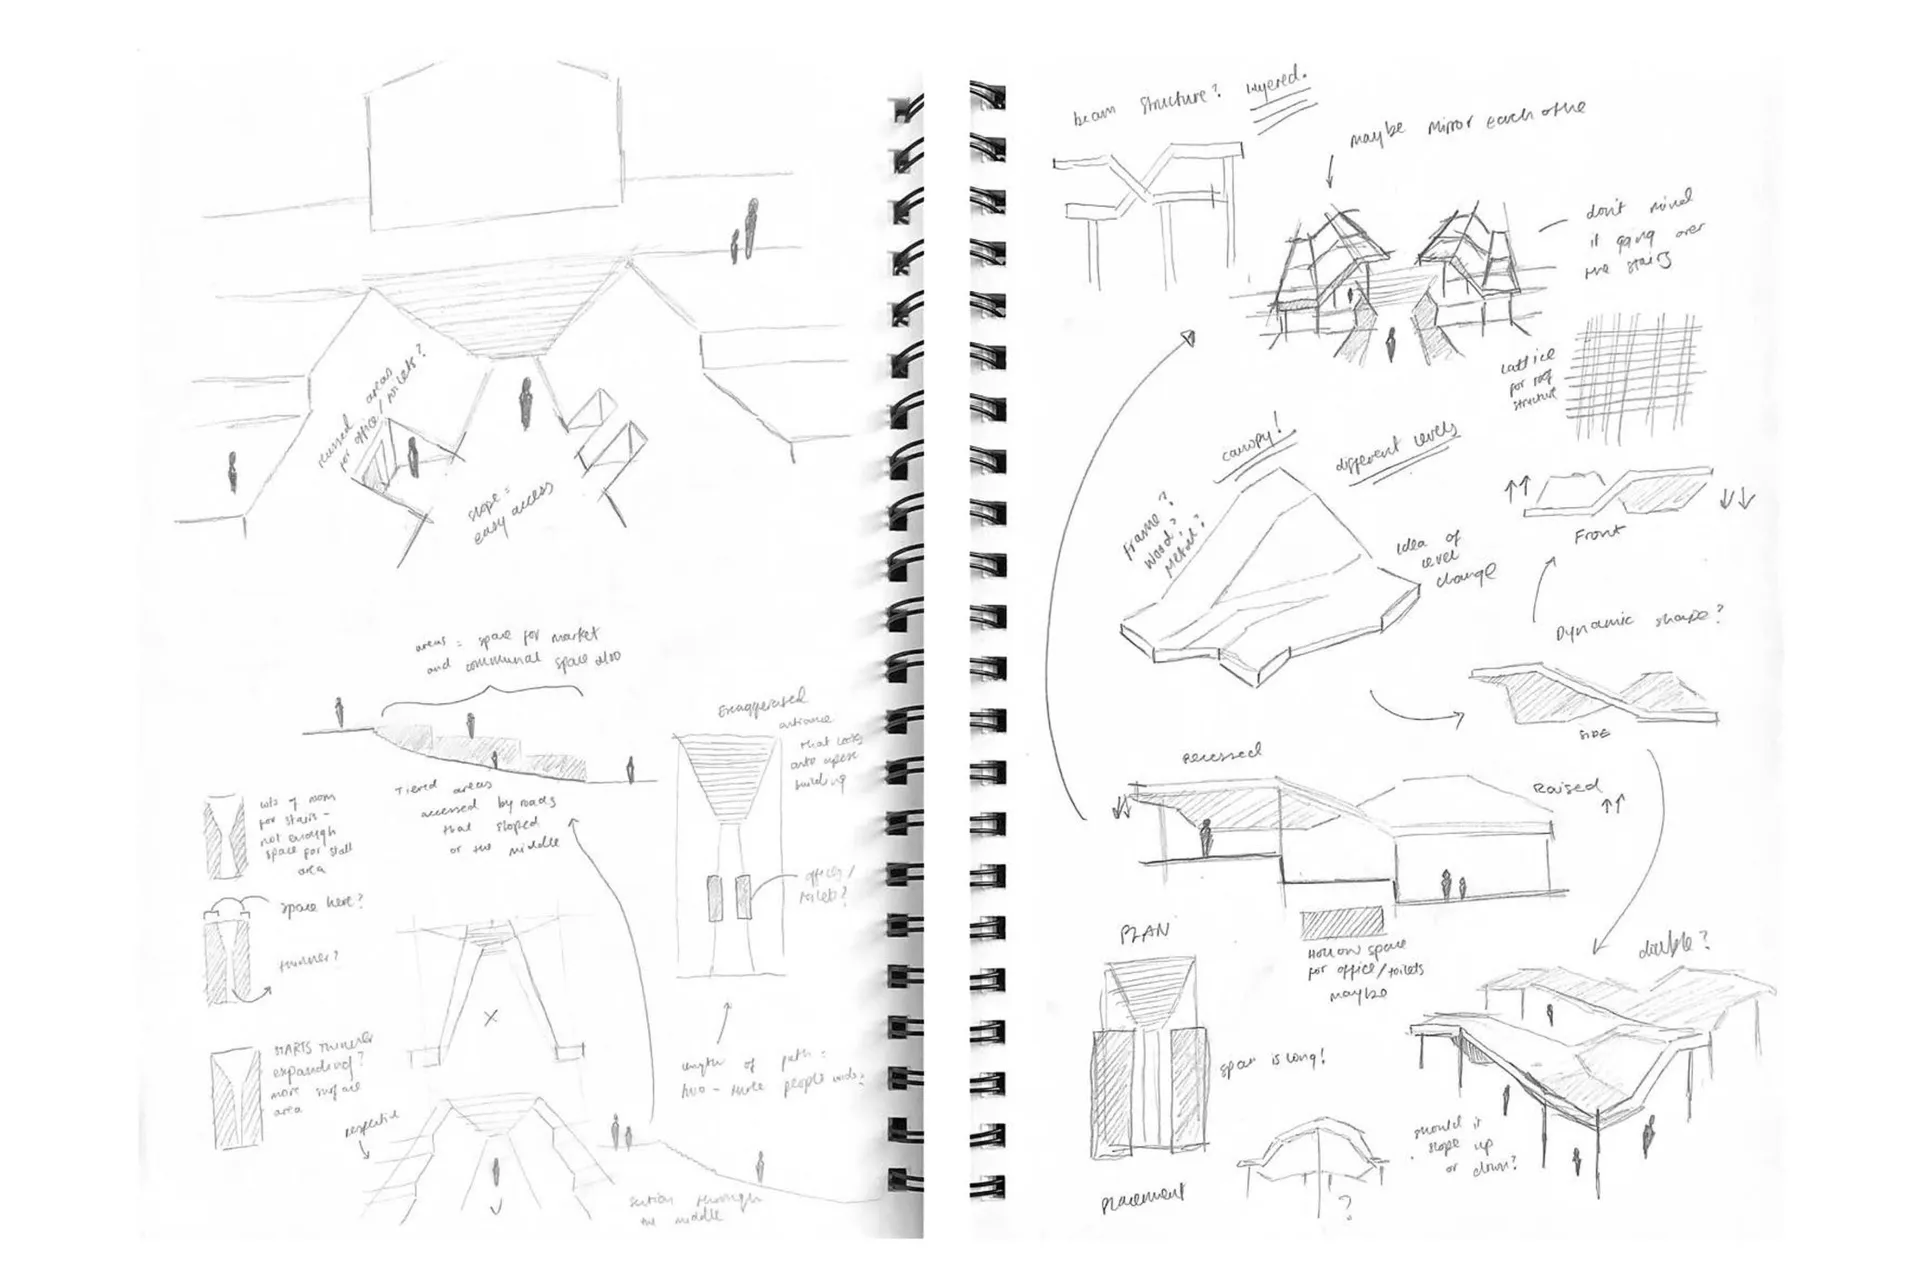 recessed areas
for office/toilets?
slope =
easy access
areas = space for market
and communal space also
Exaggerated
entrance
that looks
onto
building
Tiered areas
accessed by roads
that sloped
or the middle
of room
for stairs -
not enough
space for stall
area
space here?
thinner?
offices/
toilets?
STARTS Thinner
expanding?
more surface
area
length of path =
two - three people wide
section through
the middle
beam structure? layered.
maybe mirror each othe
don't mind
it going over
the stairs
lattice
for roof
structure
canopy!
different levels
Frame?
Wood?
Metal?
Idea of
level
change
Front
Dynamic shape?
SIDE
recessed
Raised
PLAN
Hollow space
for office/toilets
maybe
double?
span is long!
should it
slope up
or down?
placement
?